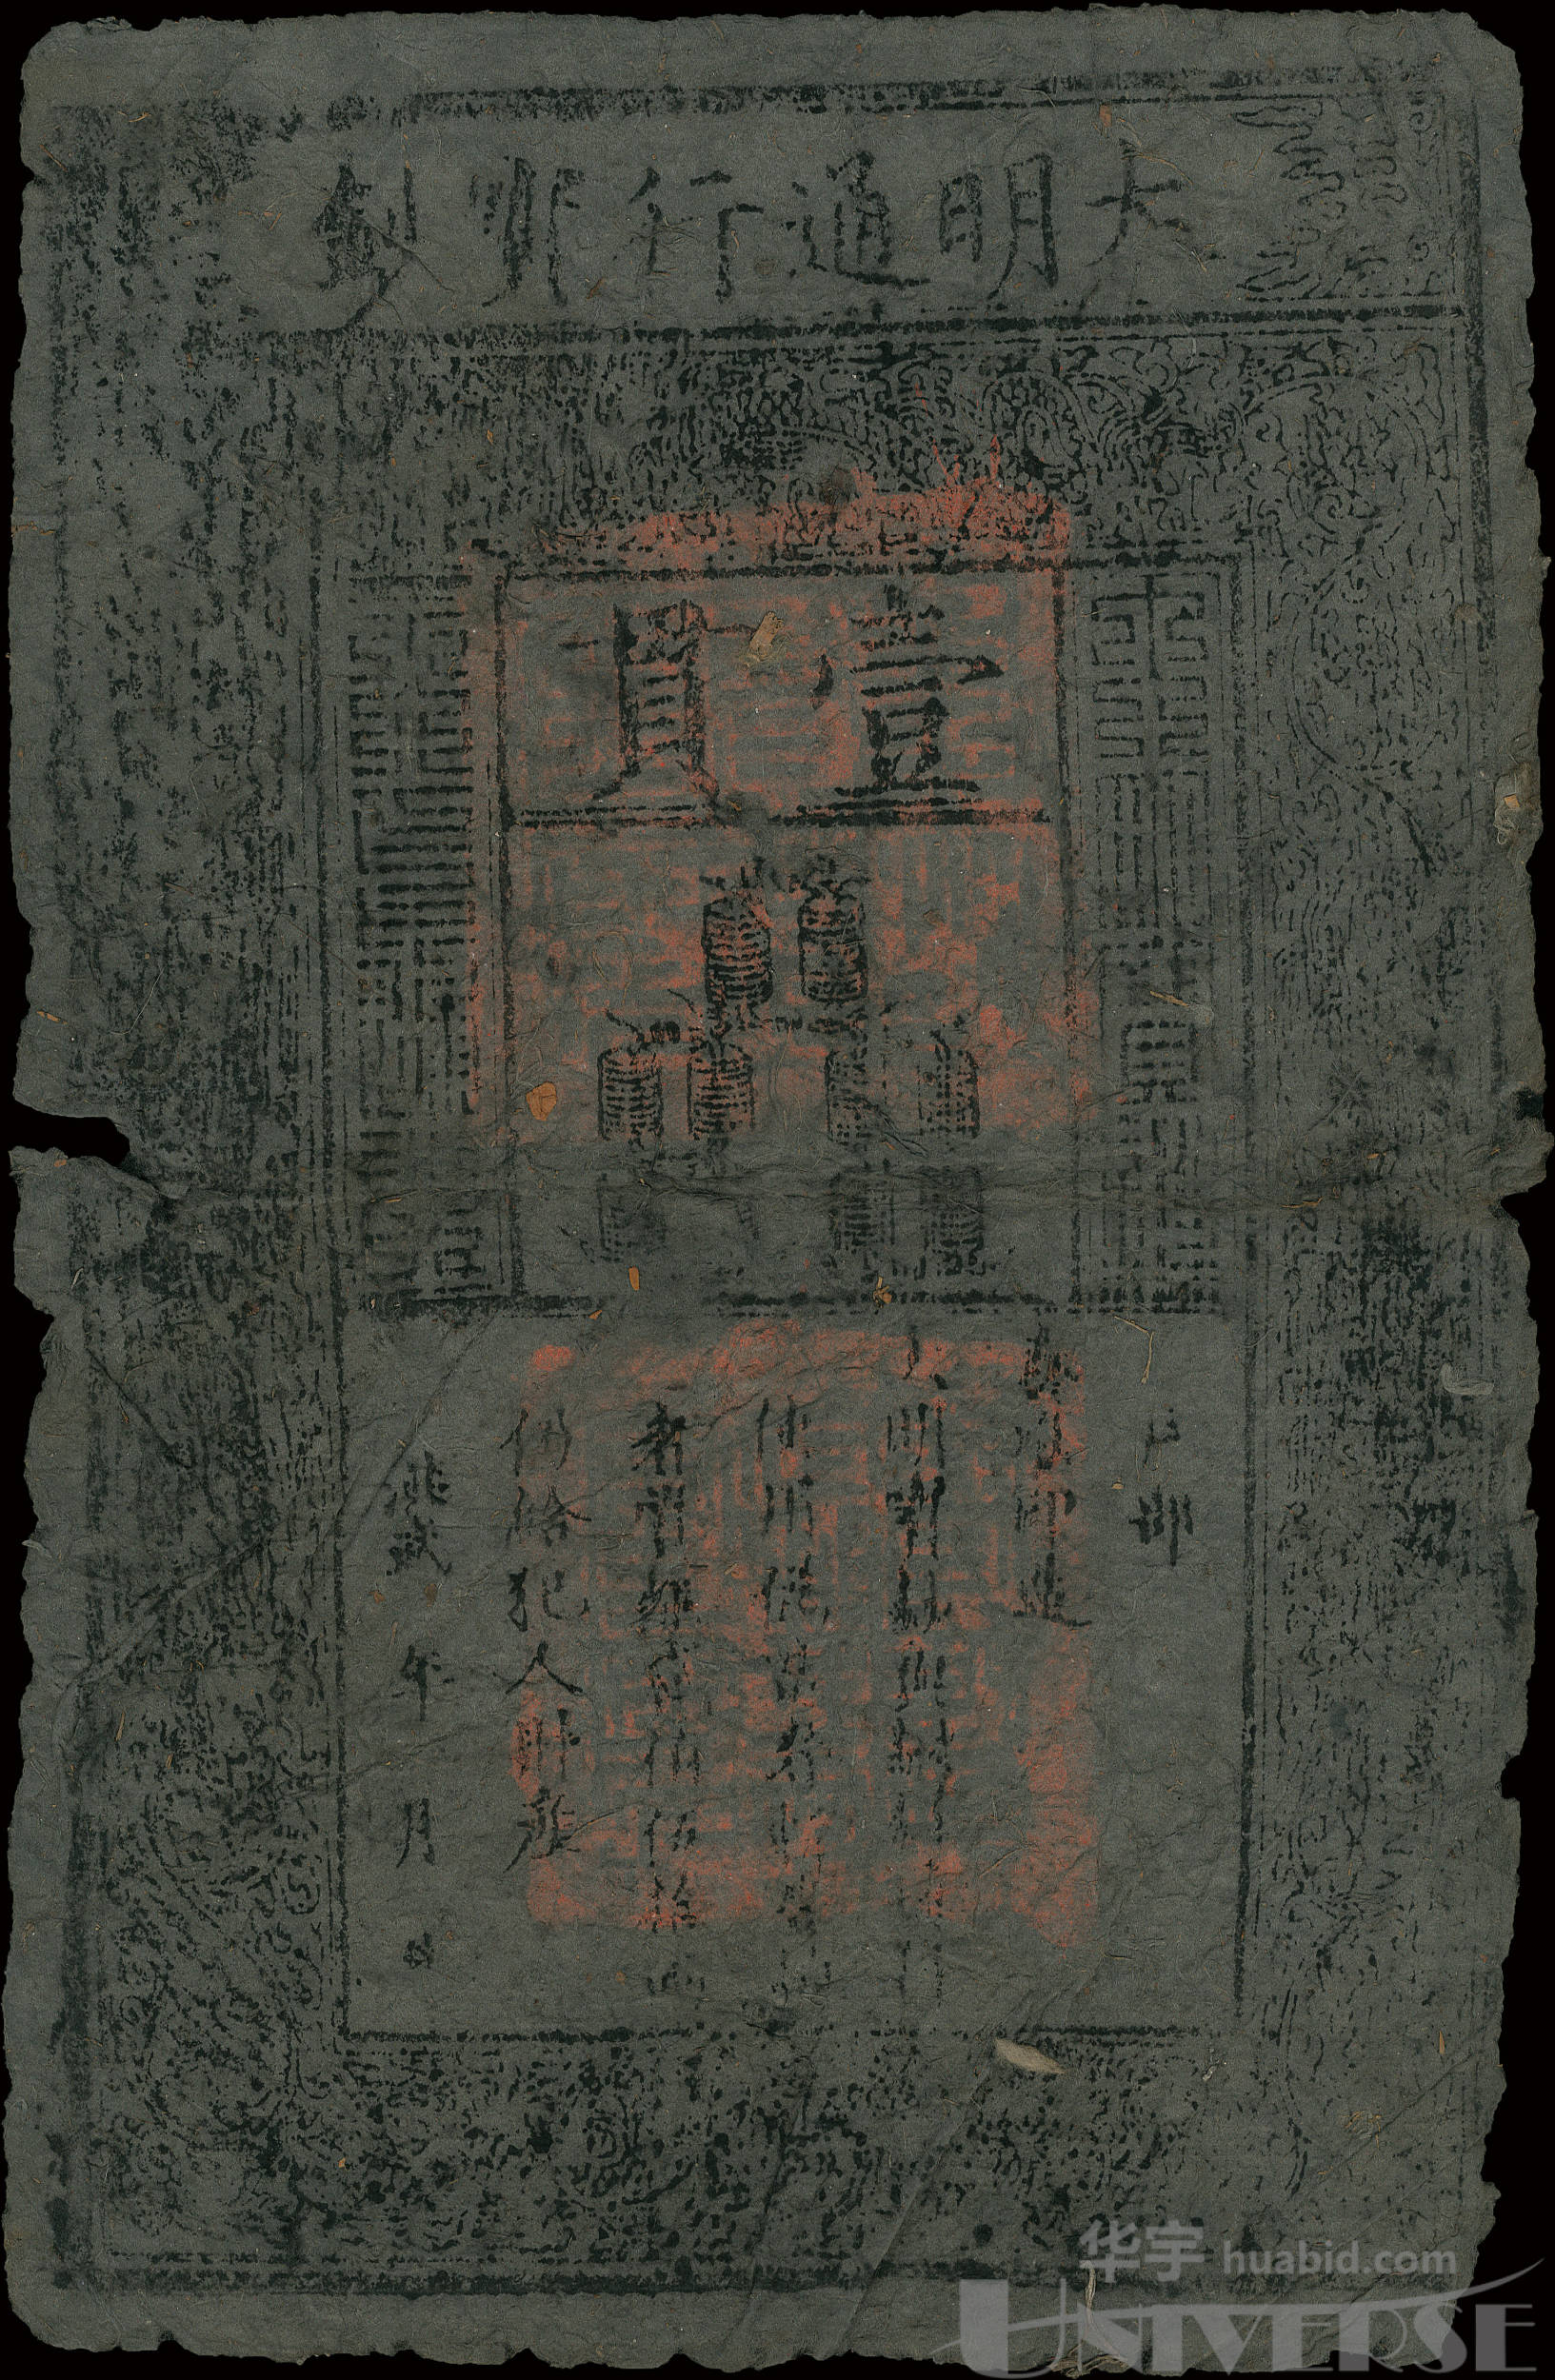 大明通行寶鈔
壹貫
戶部
奏准印造
大明寶鈔與銅錢通行
使用偽造者斬告捕
者賞銀貳佰伍拾兩
仍給犯人財產
洪武 年 月 日
华宇 huabid.com
UNIVERSE